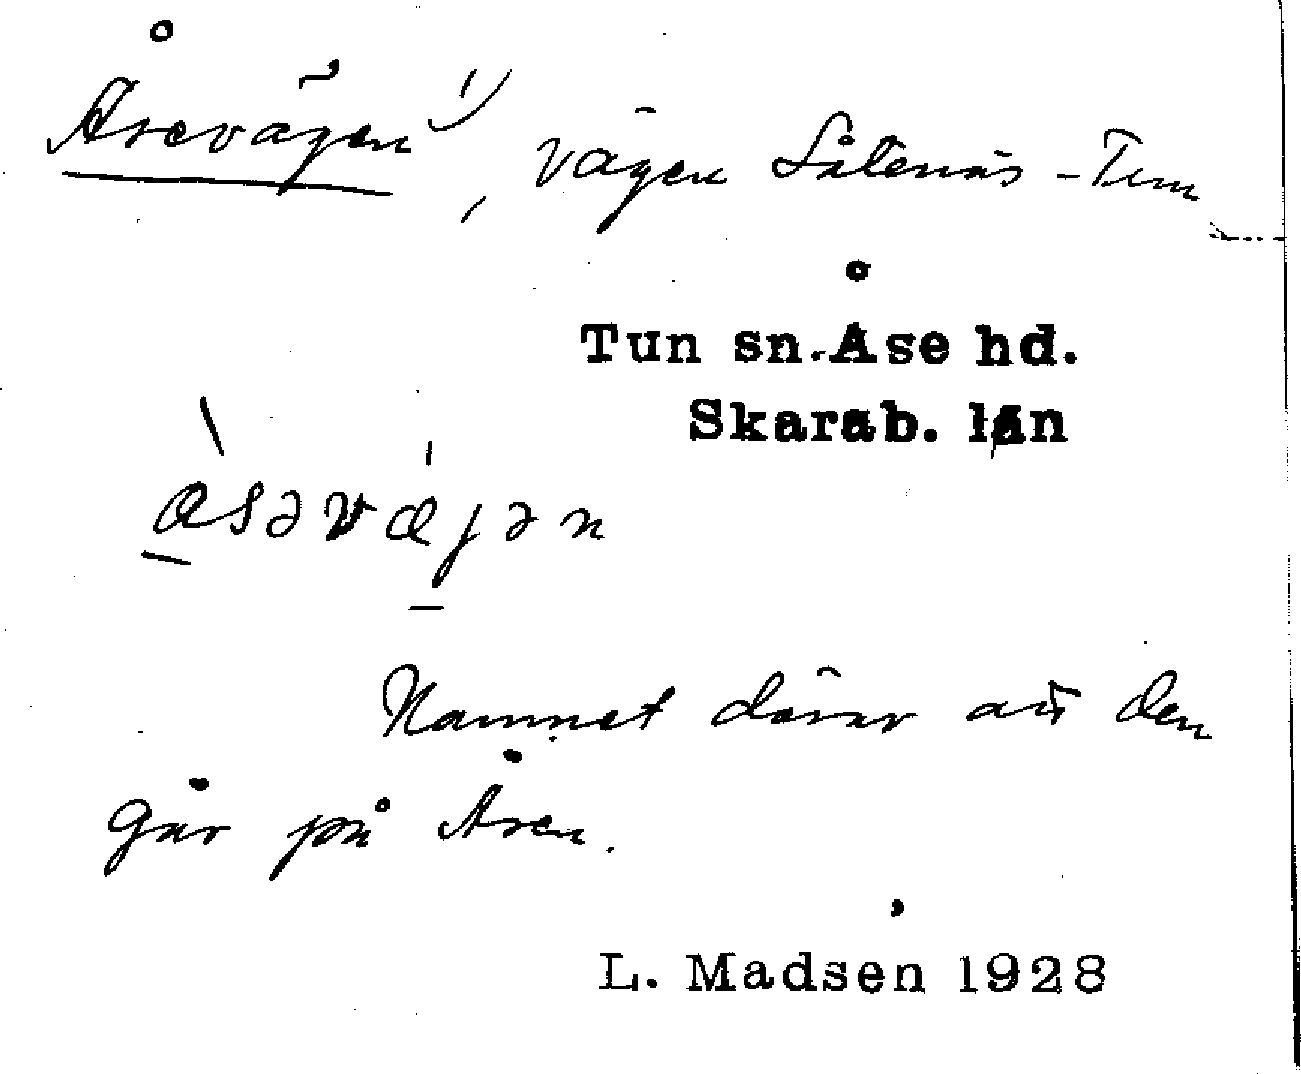 Åsevägen 1), vägen Såtenäs - Tun
Tun sn. Åse hd.
Skarab. län
àsəvæ̀jən
Namnet därav att den
går på Åsen.
L. Madsen 1928